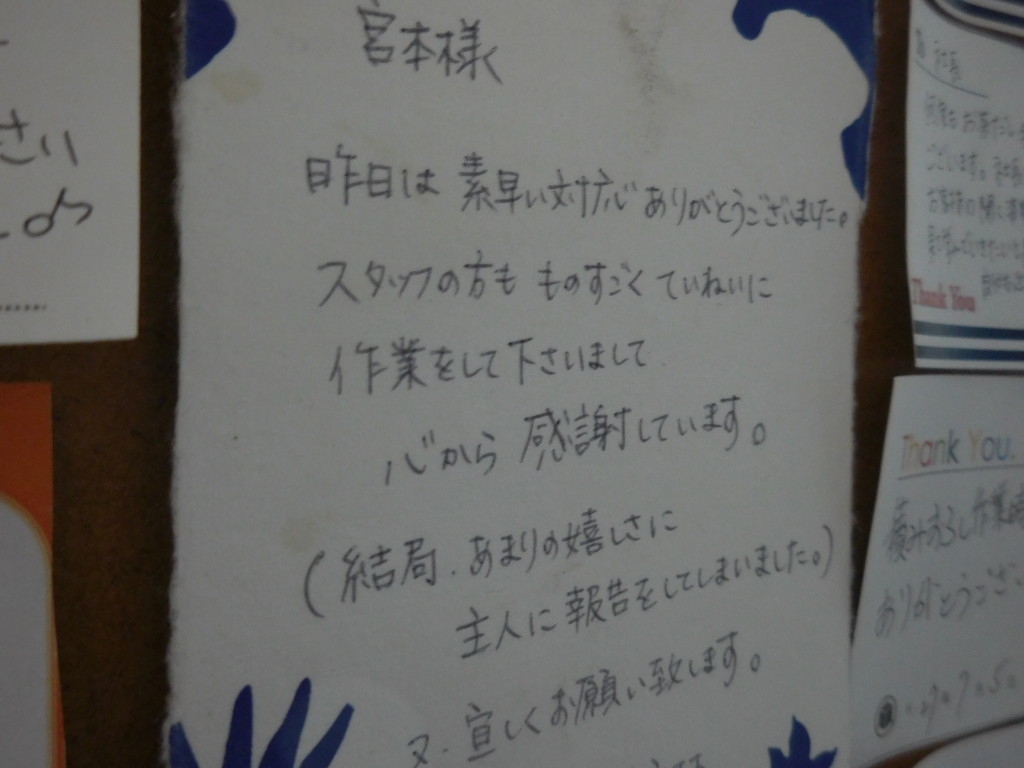 宮本様
昨日は 素早い対応 ありがとうございました。
スタッフの方も ものすごく ていねいに
作業をして下さいまして
心から 感謝しています。
(結局、あまりの嬉しさに
主人に 報告をしてしまいました。)
又、宜しくお願い致します。
さい
社長
Thank You
Thank You.
積みおろし作業
ありがとうござい